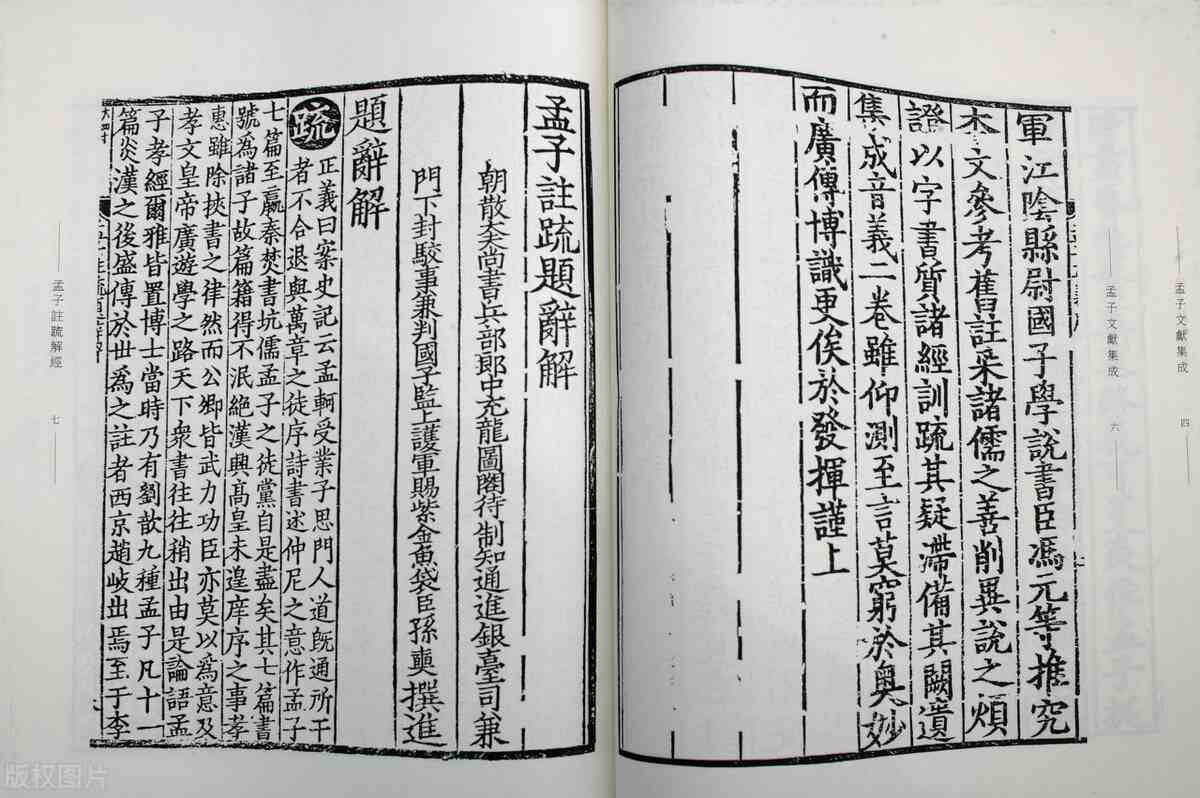 孟子文獻集成 四
孟子文獻集成 六
軍江陰縣尉國子學說書臣馮元等推究
本文參考舊註采諸儒之善削異說之煩
證以字書質諸經訓疏其疑滯備其闕遺
集成音義二卷雖仰測至言莫窮於奥妙
而廣傳博識更俟於發揮謹上
孟子註疏題辭解
朝散大夫尚書兵部郎中充龍圖閣待制知通進銀臺司兼
門下封駁事兼判國子監上護軍賜紫金魚袋臣孫奭撰進
題辭解
疏 正義曰案史記云孟軻受業子思門人道旣通所干
者不合退與萬章之徒序詩書述仲尼之意作孟子
七篇至嬴秦焚書坑儒孟子之徒黨自是盡矣其七篇書
號爲諸子故篇籍得不泯絶漢興髙皇未遑庠序之事孝
惠雖除挾書之律然而公卿皆武力功臣亦莫以爲意及
孝文皇帝廣遊學之路天下衆書往往稍出由是論語孟
子孝經爾雅皆置博士當時乃有劉歆九種孟子凡十一
篇炎漢之後盛傳於世爲之註者西京趙岐出焉至于李
孟子註疏解經 七
版权图片